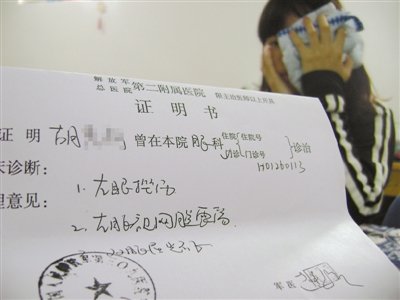 解放军
总医院 第二附属医院 限主治医师以上开具
证明书
证明 胡 曾在本院 眼科 住院 住院号 诊治
门诊 门诊号 H01260113
床诊断:
1. 左眼挫伤
理意见:
2. 左眼视网膜震荡
3.
军医